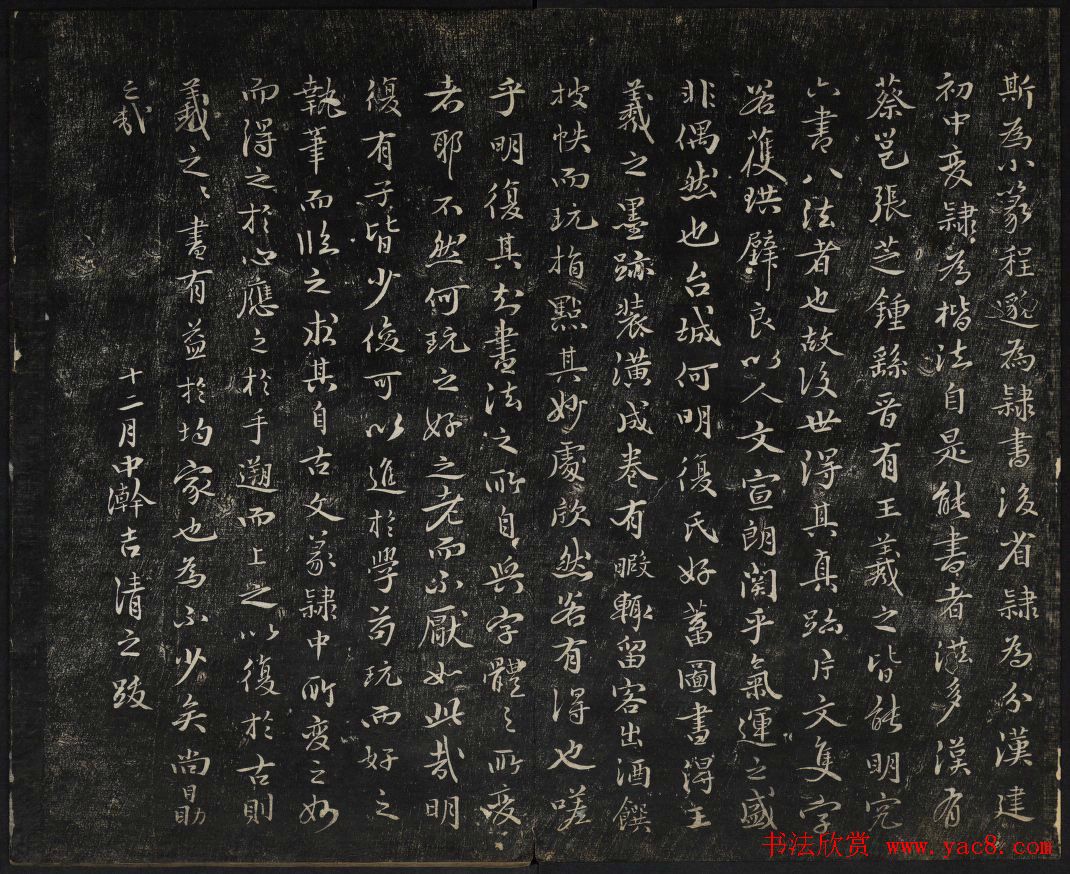 斯為小篆程邈為隸書後省隸為分漢建
初中變隸為楷法自是能書者滋多漢有
蔡邕張芝鍾繇晉有王羲之皆能明究
六書八法者也故後世得其真跡片文隻字
若獲珙璧良以人文宣朗關乎氣運之盛
非偶然也台城何明復氏好蓄圖書得王
羲之墨跡裝潢成卷有暇輒留客出酒饌
披帙而玩指點其妙處欣然若有得也嗟
乎明復其知書法之所自與字體之所變
者耶不然何玩之好之老而不厭如此哉明
復有子皆少俊可以進於學苟玩而好之
執筆而臨之求其自古文篆隸中所變之妙
而得之於心應之於手遡而上之以復於古則
羲之之書有益於均家也為不少矣尚勗
之哉
十二月中澣吉清之跋
书法欣赏 www.yac8.com